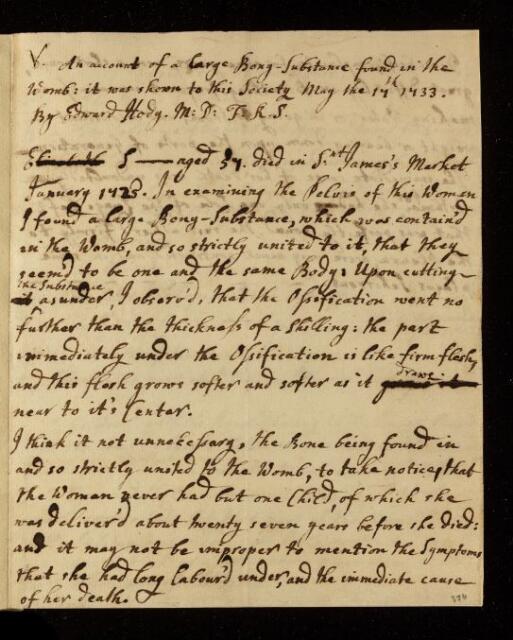 V. An account of a large Bony-Substance found in the
Womb: it was shown to this Society May the 17th 1733.
By Edward Hody. M: D: F. R. S.
Elizabeth S—— aged 57. died in St. James's Market
January 172⅔. In examining the Pelvis of this Woman
I found a large Bony-Substance, which was contain'd
in the Womb, and so strictly united to it, that they
seem'd to be one and the same Body: Upon cutting
the Substance
it asunder, I observ'd, that the Ossification went no
further than the thickness of a shilling: the part
immediately under the Ossification is like firm flesh,
and this flesh grows softer and softer as it draws
near to it's Center.
I think it not unnecessary, the Bone being found in
and so strictly united to the Womb, to take notice, that
the Woman never had but one Child, of which she
was deliver'd about twenty seven years before she died:
and it may not be improper to mention the Symptoms
that she had long labour'd under, and the immediate cause
of her death.